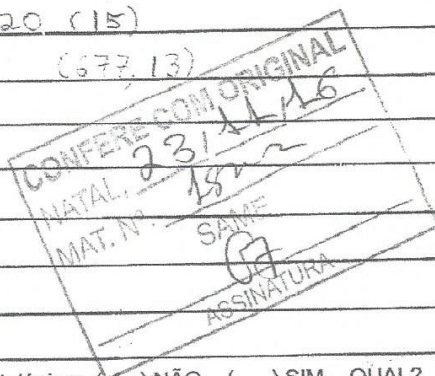 20 (15)
(677,13)
CONFERE COM ORIGINAL
NATAL, 23, 11, 16
MAT. Nº.
SAME
ASSINATURA
( )NÃO ( )SIM QUAL?